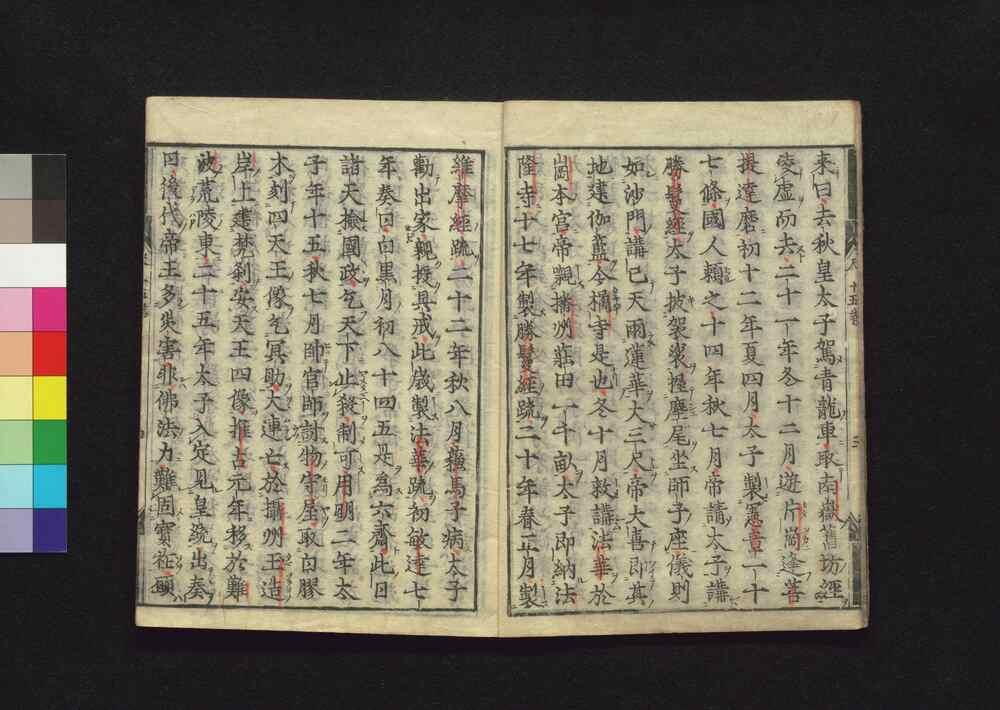 來曰去秋皇太子駕青龍車取南嶽舊坊經
凌虛而去二十一年冬十二月遊片崗逢菩
提達磨初十二年夏四月太子製憲章一十
七條國人賴之十四年秋七月帝請太子講
勝鬘經太子披袈裟握麈尾坐師子座儀則
如沙門講已天雨蓮華大三尺帝大喜即其
地建伽藍今橘寺是也冬十月敕講法華於
崗本宮帝覩播州莊田一千畝太子即納法
隆寺十七年製勝鬘經疏二十年春正月製
維摩經疏二十二年秋八月蘓馬子病太子
勸出家親授具戒此歲製法華疏初敏達七
年奏曰白黑月初八十四五是為六齋此日
諸天撿國政乞天下止殺制可用明二年太
子年十五秋七月帥官師討物守屋取白膠
木刻四天王像乞冥助大連亡於攝州王造
岸上建梵刹安天王四像推古元年移於難
波荒陵東二十五年太子入定見皇疏出奏
曰後代帝王多災害非佛法力難固寶祚頭